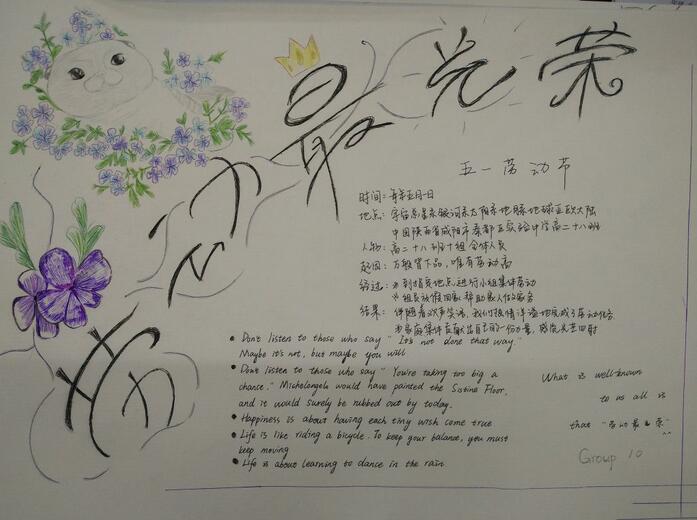 劳动最光荣
五一劳动节
时间：每年五月一日
地点：宇宙总星系银河系太阳系地球亚欧大陆
中国陕西省咸阳市秦都区实验中学高二十八班
人物：高二十八班十组全体人员
起因：万般皆下品，唯有劳动高
经过：到指定地点进行小组集体劳动
组员放假回家帮助家人做家务
结果：伴随着欢声笑语，我们激情洋溢地完成了劳动任务
为家庭集体贡献出自己的一份力量，感觉
• Don't listen to those who say " It's not done that way."
Maybe it's not, but maybe you will
• Don't listen to those who say " You're taking too big a
chance." Michelangelo would have painted the Sistine Floor,
and it would surely be rubbed out by today.
• Happiness is about having each tiny wish come true
• Life is like riding a bicycle. To keep your balance, you must
keep moving
• Life is about learning to dance in the rain
What is well-known
to us all is
that "劳动最光荣"
Group 10